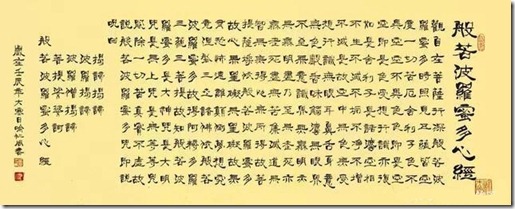 般若波羅蜜多心經
觀自在菩薩行深般若波
羅蜜多時照見五蘊皆空
度一切苦厄舍利子色不
異空空不異色色即是空
空即是色受想行識亦復
如是舍利子是諸法空相
不生不滅不垢不淨不增
不減是故空中無色無受
想行識無眼耳鼻舌身意
無色聲香味觸法無眼界
乃至無意識界無無明亦
無無明盡乃至無老死亦
無老死盡無苦集滅道無
智亦無得以無所得故菩
提薩埵依般若波羅蜜多
故心無罣礙無罣礙故無
有恐怖遠離顛倒夢想究
竟涅槃三世諸佛依般若
波羅蜜多故得阿耨多羅
三藐三菩提故知般若波
羅蜜多是大神咒是大明
咒是無上咒是無等等咒
能除一切苦真實不虛故
說般若波羅蜜多咒即說
咒曰
揭諦揭諦
波羅揭諦
波羅僧揭諦
菩提薩婆訶
般若波羅蜜多心經
歲在壬辰年大寒日